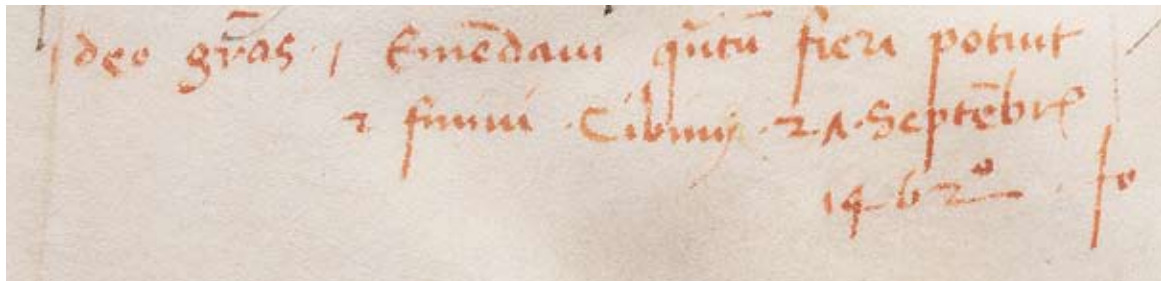 deo gr̃as · / Emēdaui qñtū fieri potuit
⁊ finiui · Cibinij · 27 · Septēbrꝭ
1462° · Jo